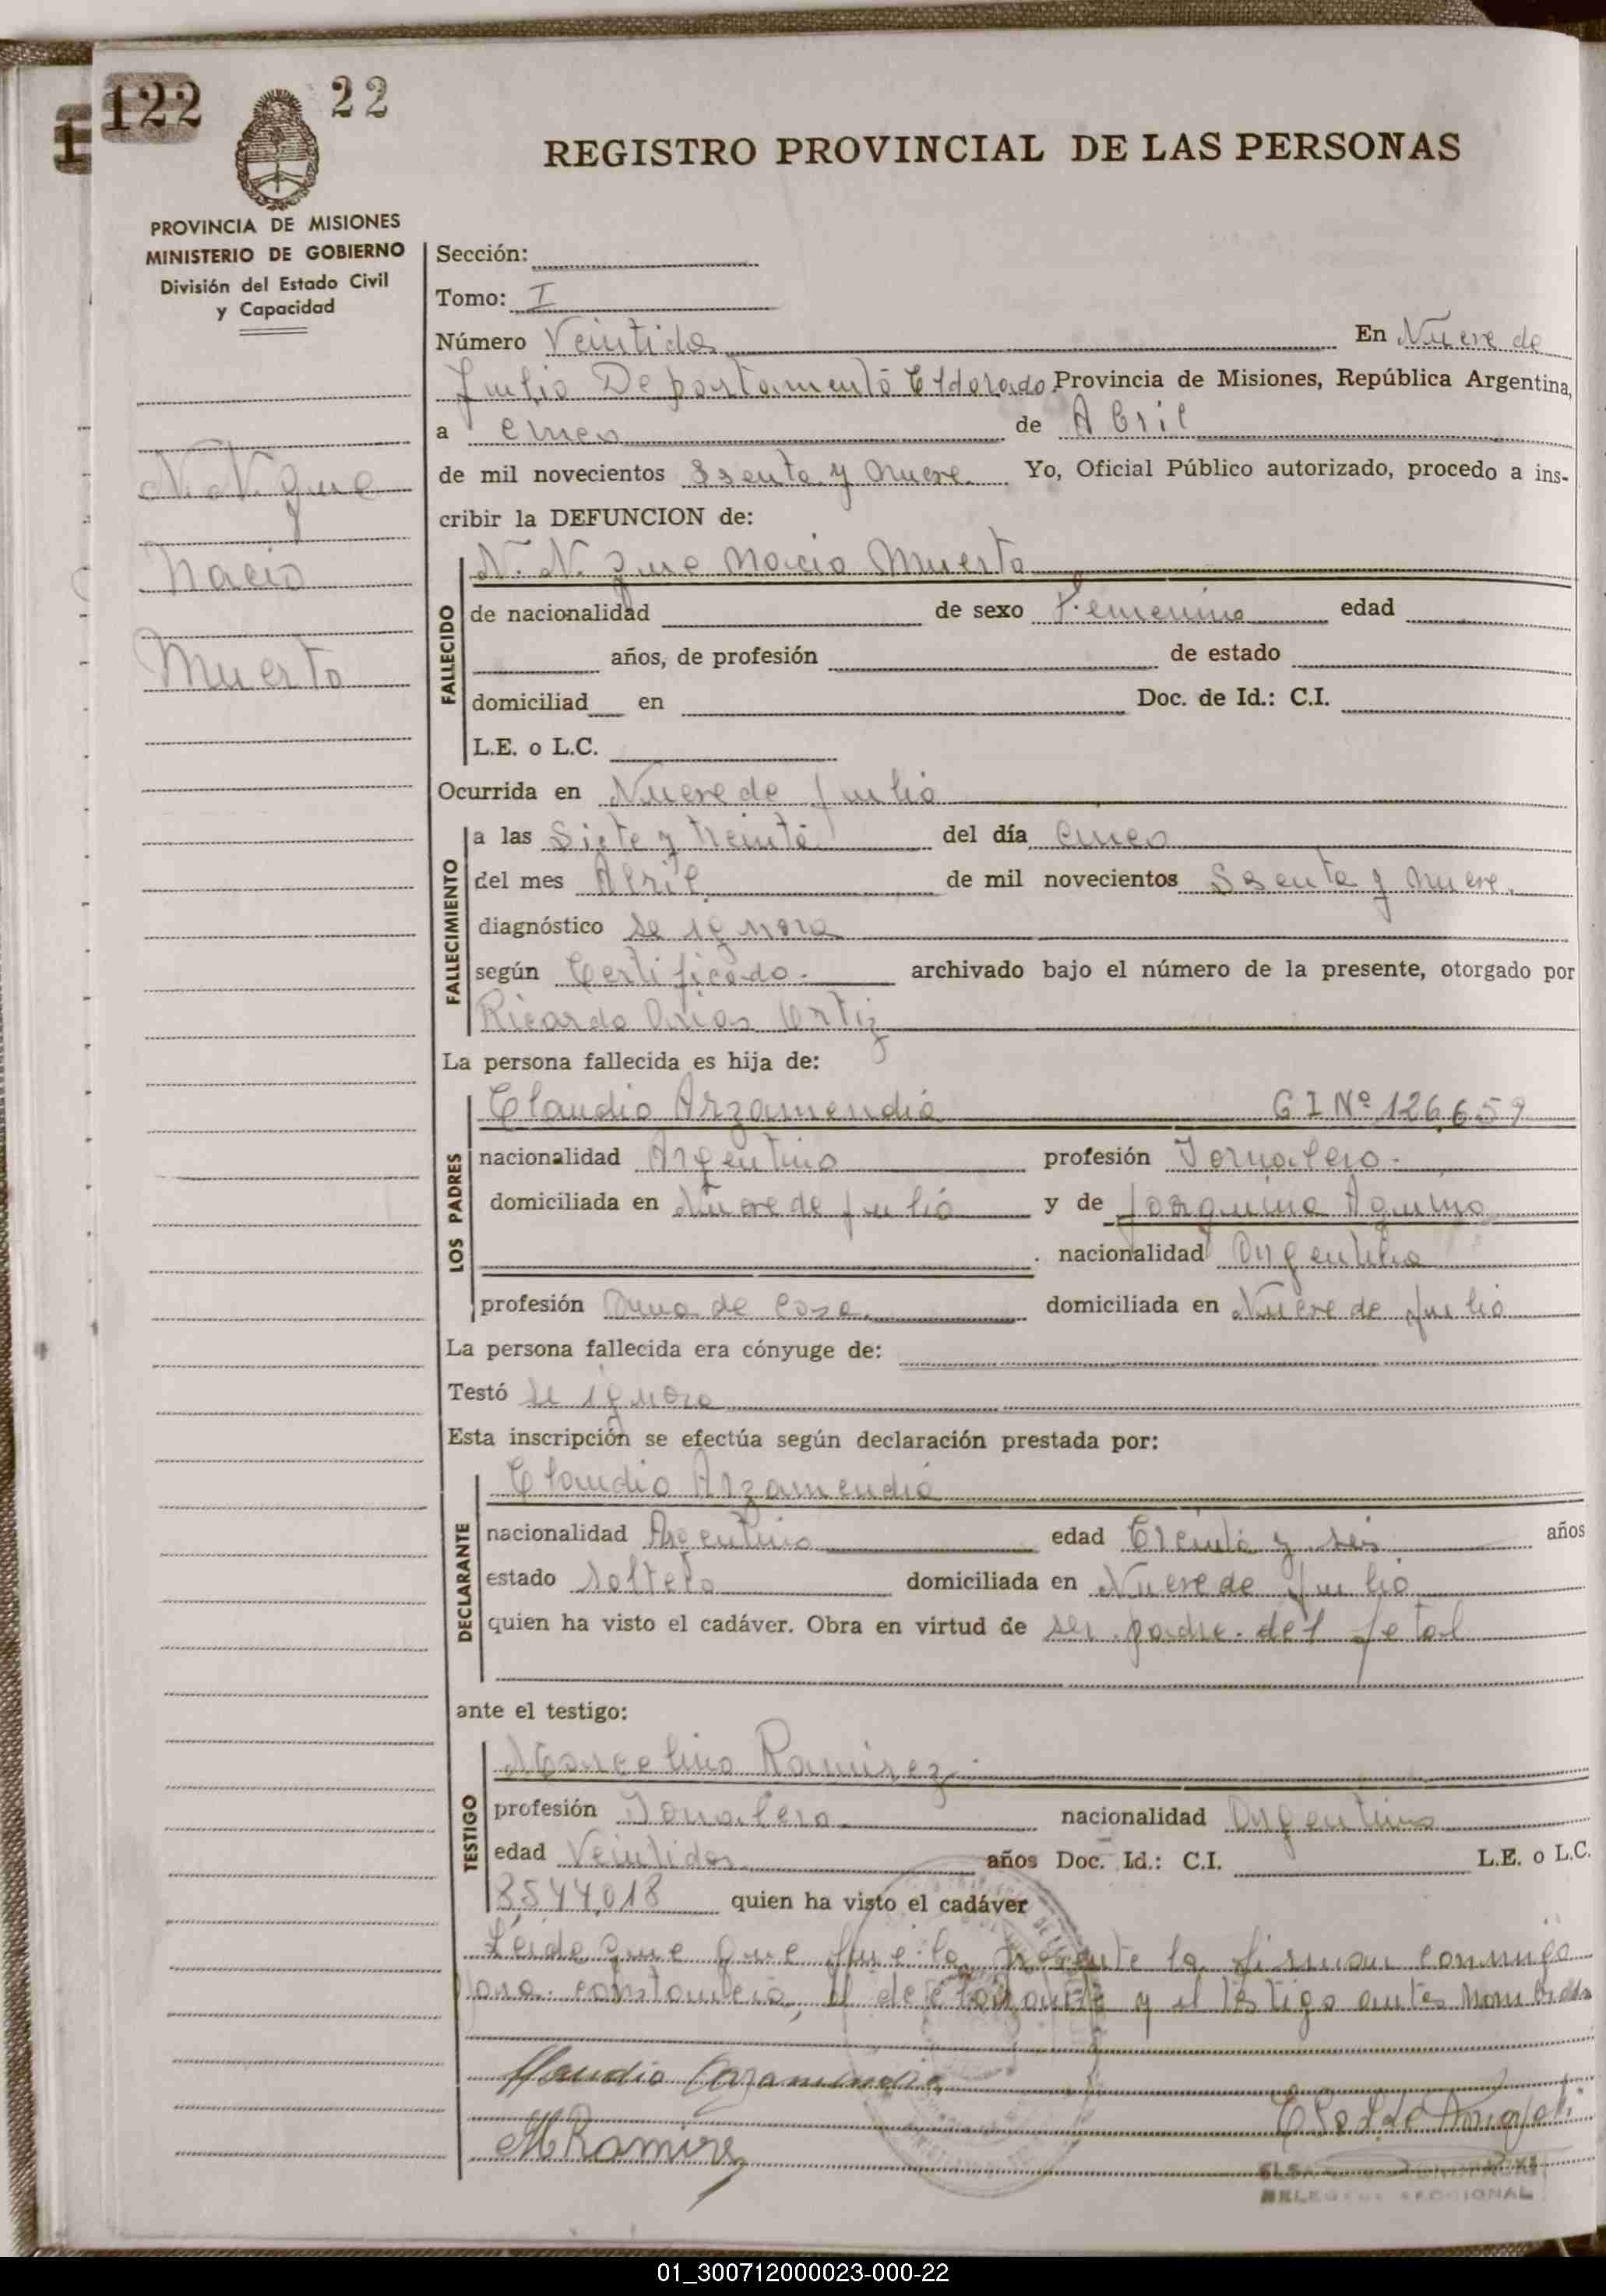 122
22
1
REGISTRO PROVINCIAL DE LAS PERSONAS
PROVINCIA DE MISIONES
MINISTERIO DE GOBIERNO
División del Estado Civil
y Capacidad
N. N. que
nacio
Muerto
Sección:
Tomo: I
Número Veintidos En Nueve de
Julio Departamento Eldorado Provincia de Misiones, República Argentina,
a cinco de Abril
de mil novecientos Ssenta y nueve Yo, Oficial Público autorizado, procedo a ins-
cribir la DEFUNCION de:
FALLECIDO
N. N. que Nacio Muerto
de nacionalidad de sexo Femenino edad
años, de profesión de estado
domiciliad en Doc. de Id.: C.I.
L.E. o L.C.
Ocurrida en Nueve de Julio
FALLECIMIENTO
a las Siete y treinta del día Cinco
del mes Abril de mil novecientos Ssenta y nueve
diagnóstico se ignora
según Certificado. archivado bajo el número de la presente, otorgado por
Ricardo Arias Ortiz
La persona fallecida es hija de:
LOS PADRES
Claudio Arzamendia C I Nº 126,659
nacionalidad Argentino profesión Jornalero.
domiciliada en Nueve de Julio y de Jorguina Aquino
nacionalidad Argentina
profesión Ama de Casa domiciliada en Nueve de Julio
La persona fallecida era cónyuge de:
Testó se ignora
Esta inscripción se efectúa según declaración prestada por:
DECLARANTE
Claudio Arzamendia
nacionalidad Argentino edad Treinta y seis años
estado soltero domiciliada en Nueve de Julio
quien ha visto el cadáver. Obra en virtud de ser padre del fetal
ante el testigo:
TESTIGO
Marcelino Ramirez
profesión Jornalero nacionalidad Argentino
edad Veintidos años Doc. Id.: C.I. L.E. o L.C.
8,544,018 quien ha visto el cadáver
Leida que que fue la presente la firman conmigo
para constancia, el declarante y el testigo antes nombrado
Claudio Arzamendia
M Ramirez
DELEGADA SECCIONAL
01_300712000023-000-22